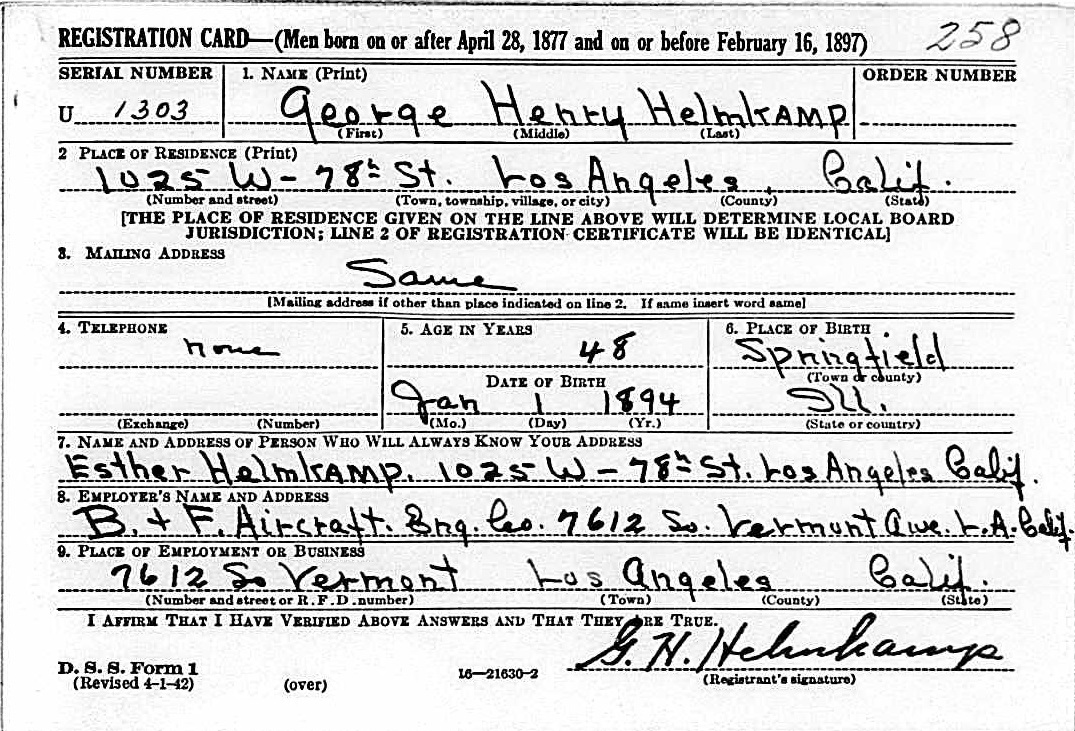 REGISTRATION CARD—(Men born on or after April 28, 1877 and on or before February 16, 1897) 258
SERIAL NUMBER 1. NAME (Print) ORDER NUMBER
U 1303 George Henry HelmkAMP
(First) (Middle) (Last)
2 PLACE OF RESIDENCE (Print)
1025 W - 78th St. Los Angeles, Calif.
(Number and street) (Town, township, village, or city) (County) (State)
[THE PLACE OF RESIDENCE GIVEN ON THE LINE ABOVE WILL DETERMINE LOCAL BOARD
JURISDICTION; LINE 2 OF REGISTRATION CERTIFICATE WILL BE IDENTICAL]
3. MAILING ADDRESS
Same
[Mailing address if other than place indicated on line 2. If same insert word same]
4. TELEPHONE 5. AGE IN YEARS 6. PLACE OF BIRTH
none 48 Springfield
DATE OF BIRTH (Town or county)
Jan 1 1894 Ill.
(Exchange) (Number) (Mo.) (Day) (Yr.) (State or country)
7. NAME AND ADDRESS OF PERSON WHO WILL ALWAYS KNOW YOUR ADDRESS
Esther HelmkAMP. 1025 W - 78th St. Los Angeles Calif.
8. EMPLOYER'S NAME AND ADDRESS
B. + F. Aircraft. Eng. Co. 7612 So. Vermont Ave. L.A. Calif.
9. PLACE OF EMPLOYMENT OR BUSINESS
7612 So Vermont Los Angeles Calif.
(Number and street or R. F. D. number) (Town) (County) (State)
I AFFIRM THAT I HAVE VERIFIED ABOVE ANSWERS AND THAT THEY ARE TRUE.
G. H. Helmkamp
D. S. S. Form 1
(Revised 4-1-42) (over) 16—21630-2 (Registrant's signature)